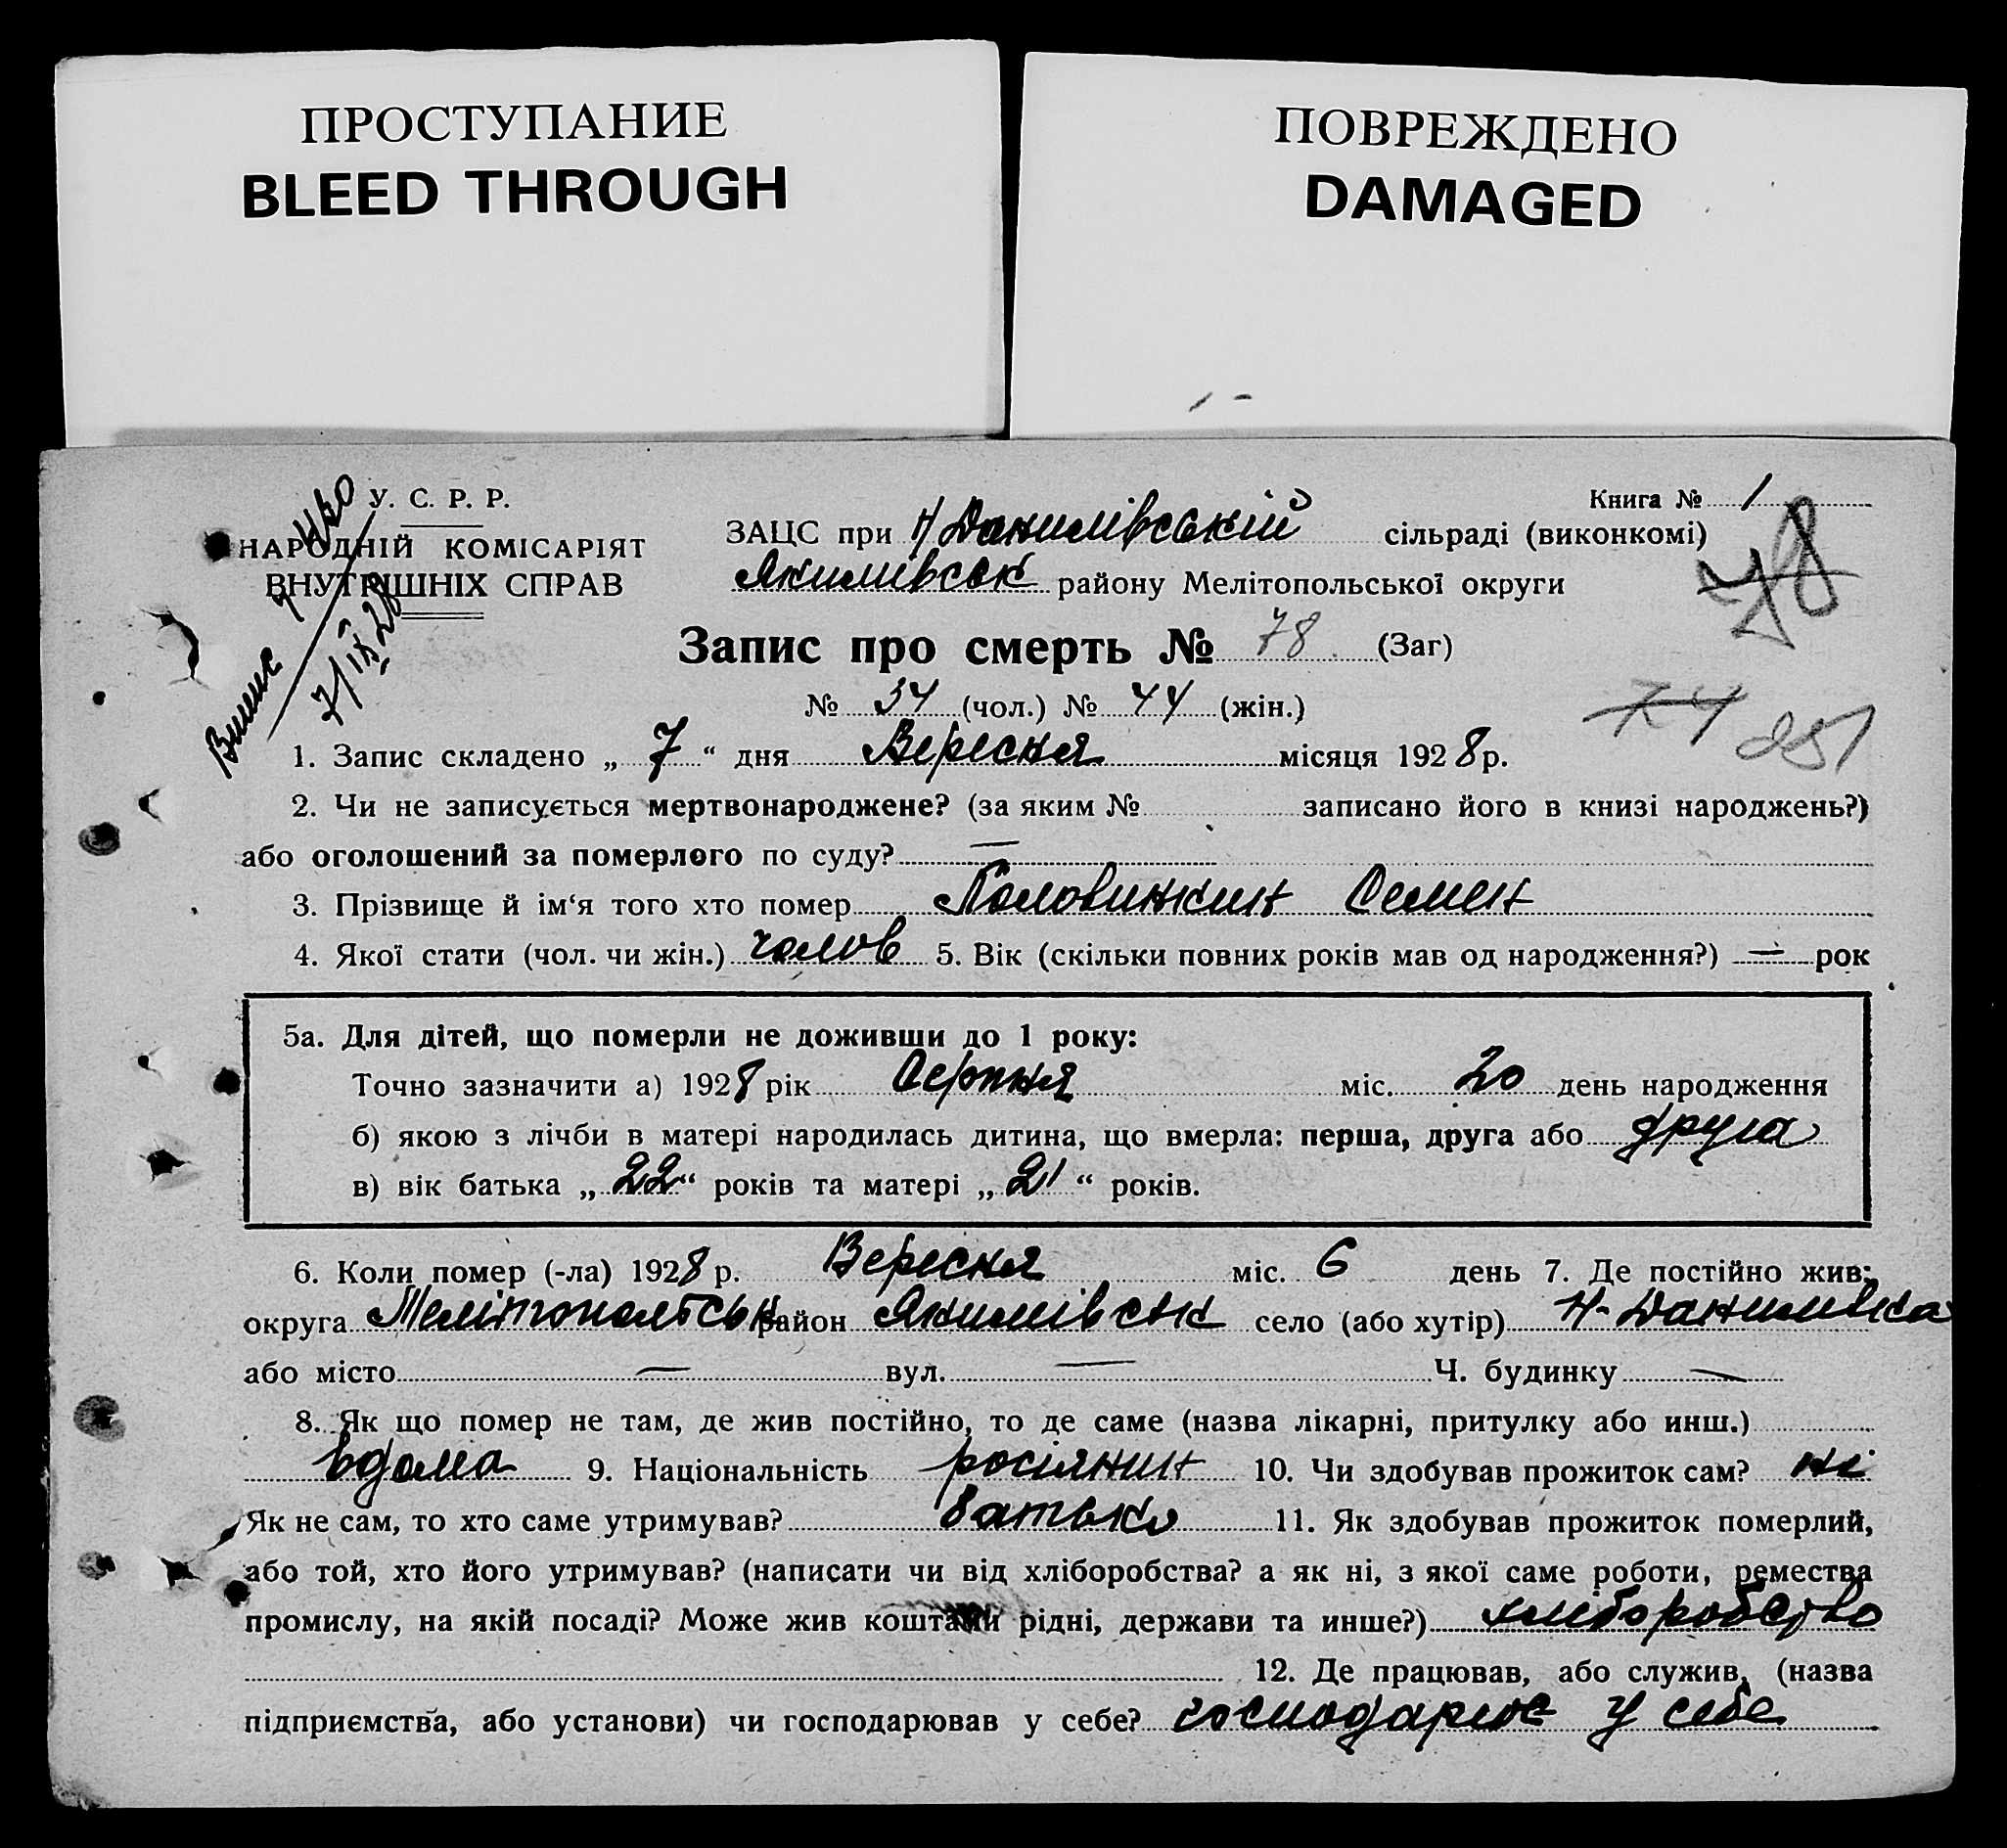 ПРОСТУПАНИЕ
BLEED THROUGH
ПОВРЕЖДЕНО
DAMAGED
У. С. Р. Р.
НАРОДНІЙ КОМІСАРІЯТ
ВНУТРІШНІХ СПРАВ
7/IX 28
Книга № 1
ЗАЦС при Н Данилівській сільраді (виконкомі)
Якимівськ району Мелітопольської округи
78
Запис про смерть № 78 (Заг)
№ 34 (чол.) № 44 (жін.)
74
1. Запис складено „ 7 “ дня Вересня місяця 1928 р.
2. Чи не записується мертвонароджене? (за яким № записано його в книзі народжень?)
або оголошений за померлого по суду? —
3. Прізвище й ім‘я того хто помер Половинкин Семен
4. Якої стати (чол. чи жін.) чолов 5. Вік (скільки повних років мав од народження?) — рок
5а. Для дітей, що померли не доживши до 1 року:
Точно зазначити а) 1928 рік Серпня міс. 20 день народження
б) якою з лічби в матері народилась дитина, що вмерла: перша, друга або друга
в) вік батька „ 22 “ років та матері „ 21 “ років.
6. Коли помер (-ла) 1928 р. Вересня міс. 6 день 7. Де постійно жив:
округа Мелітопольськ район Якимівськ село (або хутір) Н-Данилівка
або місто — вул. — Ч. будинку —
8. Як що помер не там, де жив постійно, то де саме (назва лікарні, притулку або инш.)
вдома 9. Національність росіянин 10. Чи здобував прожиток сам? ні
Як не сам, то хто саме утримував? батько 11. Як здобував прожиток померлий,
або той, хто його утримував? (написати чи від хліборобства? а як ні, з якої саме роботи, ремества
промислу, на якій посаді? Може жив коштами рідні, держави та инше?) хліборобство
12. Де працював, або служив, (назва
підприємства, або установи) чи господарював у себе? господарює у себе